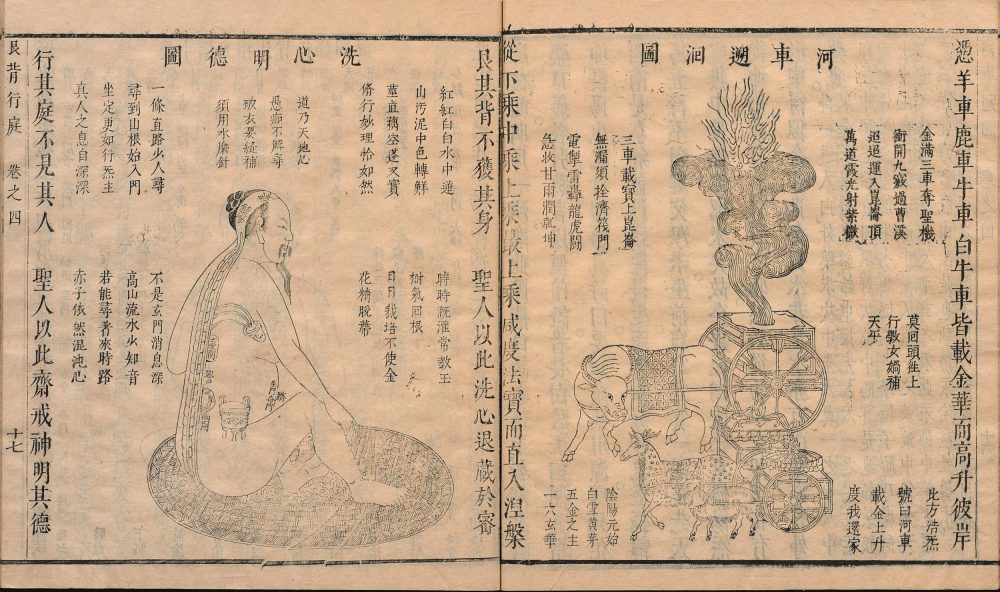 河車遡洄圖
憑羊車鹿車牛車白牛車皆載金華而高升彼岸
金滿三車奪聖機
衝開九竅過曹溪
迢迢運入崑崙頂
萬道霞光射紫微
莫回頭往上
行教女媧補
天乎
此方浩炁
號曰河車
載金上升
度我還家
三車載寶上崑崙
無漏須拴濟筏門
電掣雷轟龍虎鬪
急收甘雨潤乾坤
陰陽元始
白雪黃芽
五金之主
一六玄華
從下乘中乘上乘最上乘咸慶法寶而直入涅槃
洗心明德圖
艮其背不獲其身 聖人以此洗心退藏於密
紅紅白白水中蓮
出污泥中色轉鮮
莖直藕空蓬又實
脩行妙理恰如然
時時溉灌常教玉
樹氣回根
日日栽培不使金
花精脫蒂
道乃天地心
愚癡不解尋
破衣要線補
須用水磨針
一條直路少人尋
尋到山根始入門
坐定更如行炁主
真人之息自深深
不是玄門消息深
高山流水少知音
若能尋著來時路
赤子依然混沌心
行其庭不見其人 聖人以此齋戒神明其德
艮背行庭 卷之四 十七